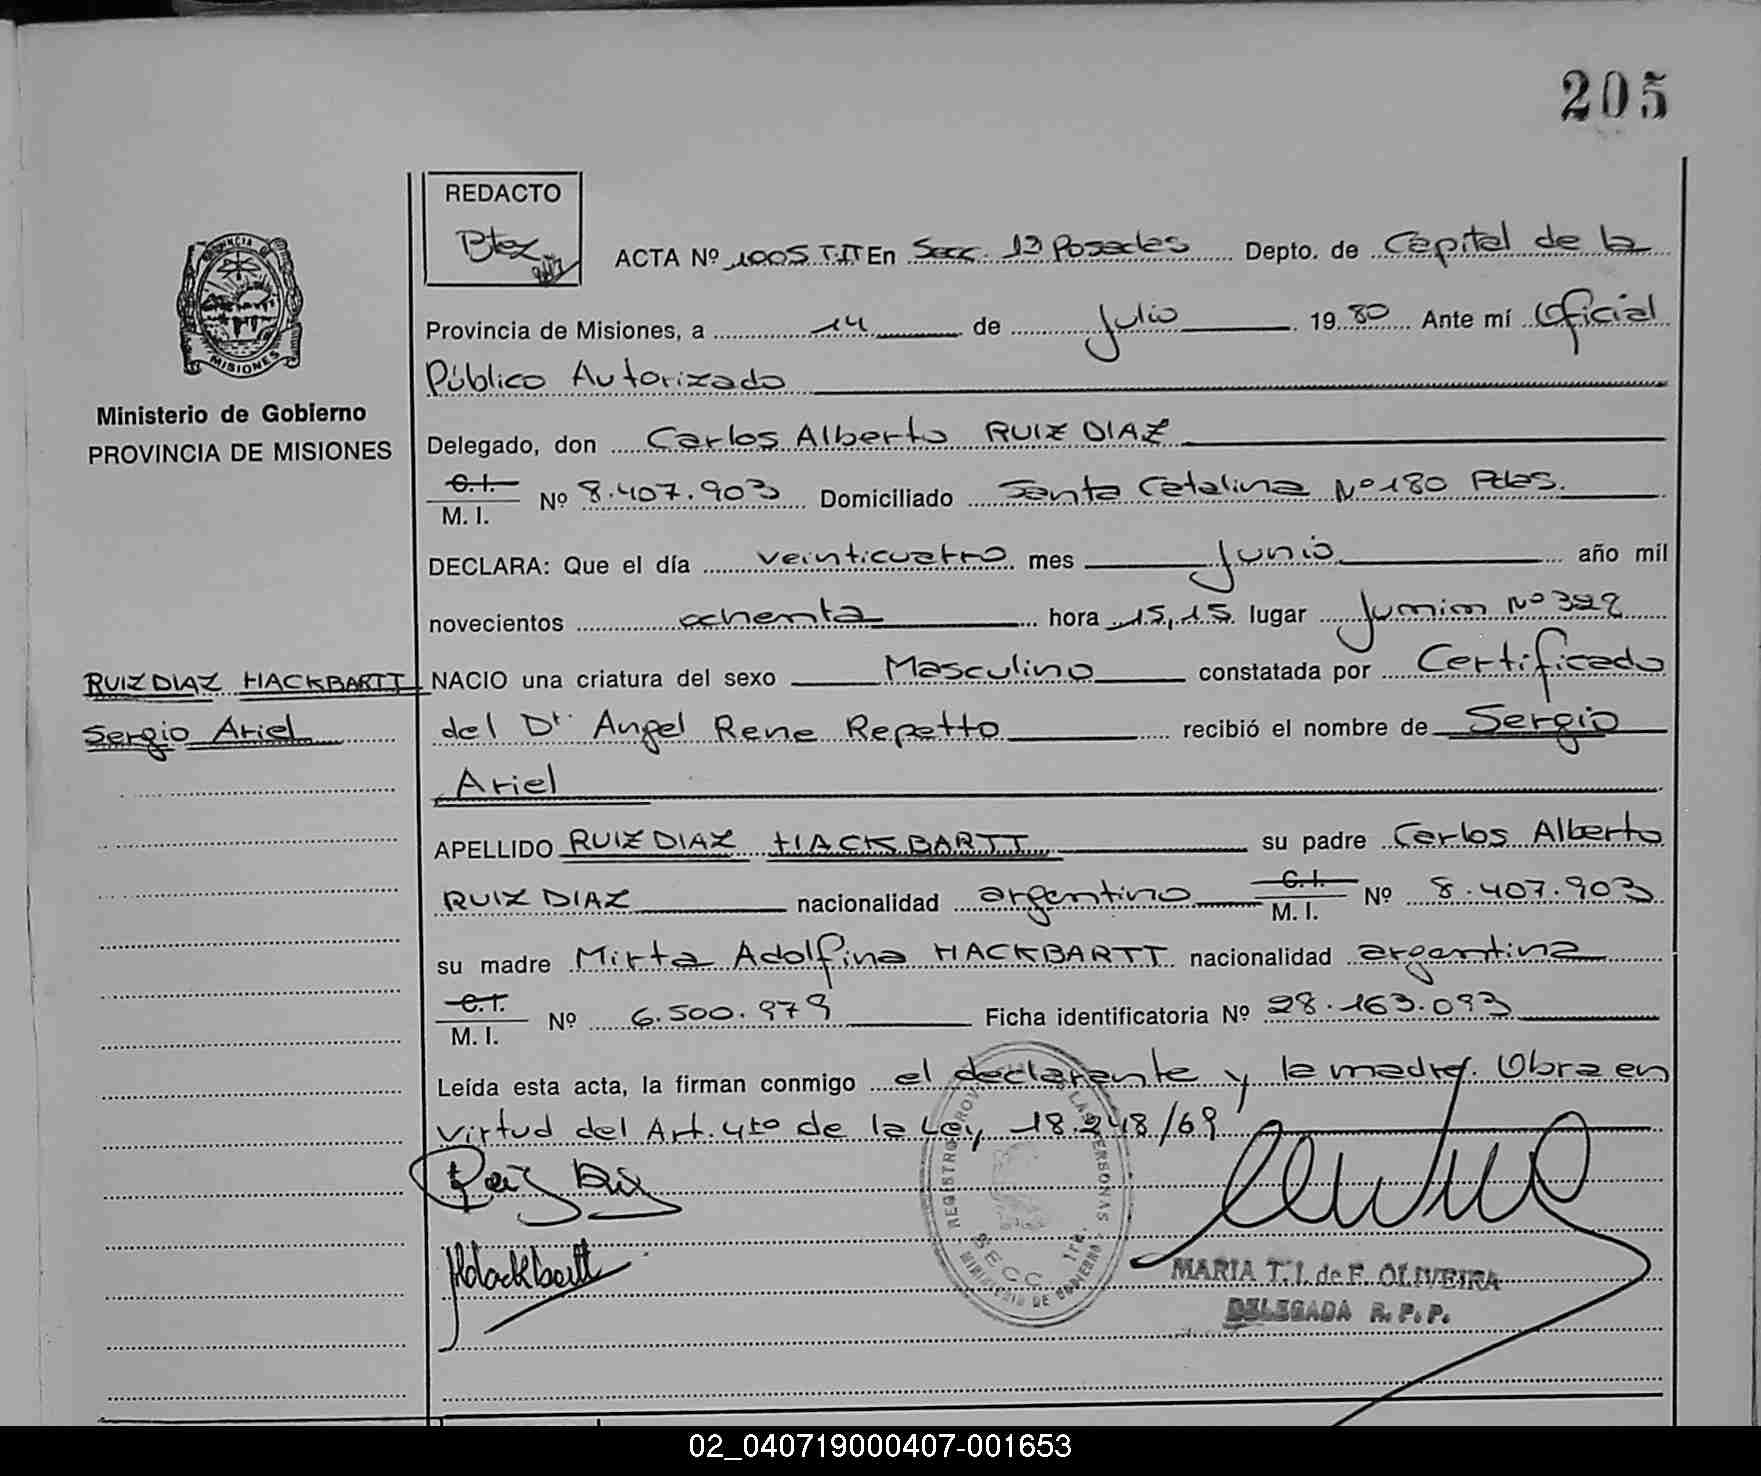 205
REDACTO
ACTA Nº 1005 T.II En Secc. 1ª Posadas Depto. de Capital de la
Provincia de Misiones, a 14 de Julio 1980 Ante mí Oficial
Público Autorizado
MISIONES
Ministerio de Gobierno
PROVINCIA DE MISIONES
Delegado, don Carlos Alberto RUIZ DIAZ
C.I. M.I. Nº 8.407.903 Domiciliado Santa Catalina Nº 180 Pdas.
DECLARA: Que el día veinticuatro mes Junio año mil
novecientos ochenta hora 15,15 lugar Junin Nº
RUIZ DIAZ HACKBARTT
Sergio Ariel
NACIO una criatura del sexo Masculino constatada por Certificado
del Dr. Angel Rene Repetto recibió el nombre de Sergio
Ariel
APELLIDO RUIZ DIAZ HACKBARTT su padre Carlos Alberto
RUIZ DIAZ nacionalidad argentino C.I. M.I. Nº 8.407.903
su madre Mirta Adolfina HACKBARTT nacionalidad argentina
C.I. M.I. Nº 6.500.979 Ficha identificatoria Nº 28.163.093
Leída esta acta, la firman conmigo el declarante y la madre. Obra en
virtud del Art. 4to de la Ley 18.248/69
Ruiz Diaz
Hackbartt
SECC 1ra.
MINISTERIO DE GOBIERNO
MARIA T. I. de F. OLIVEIRA
DELEGADA R. P. P.
02_040719000407-001653